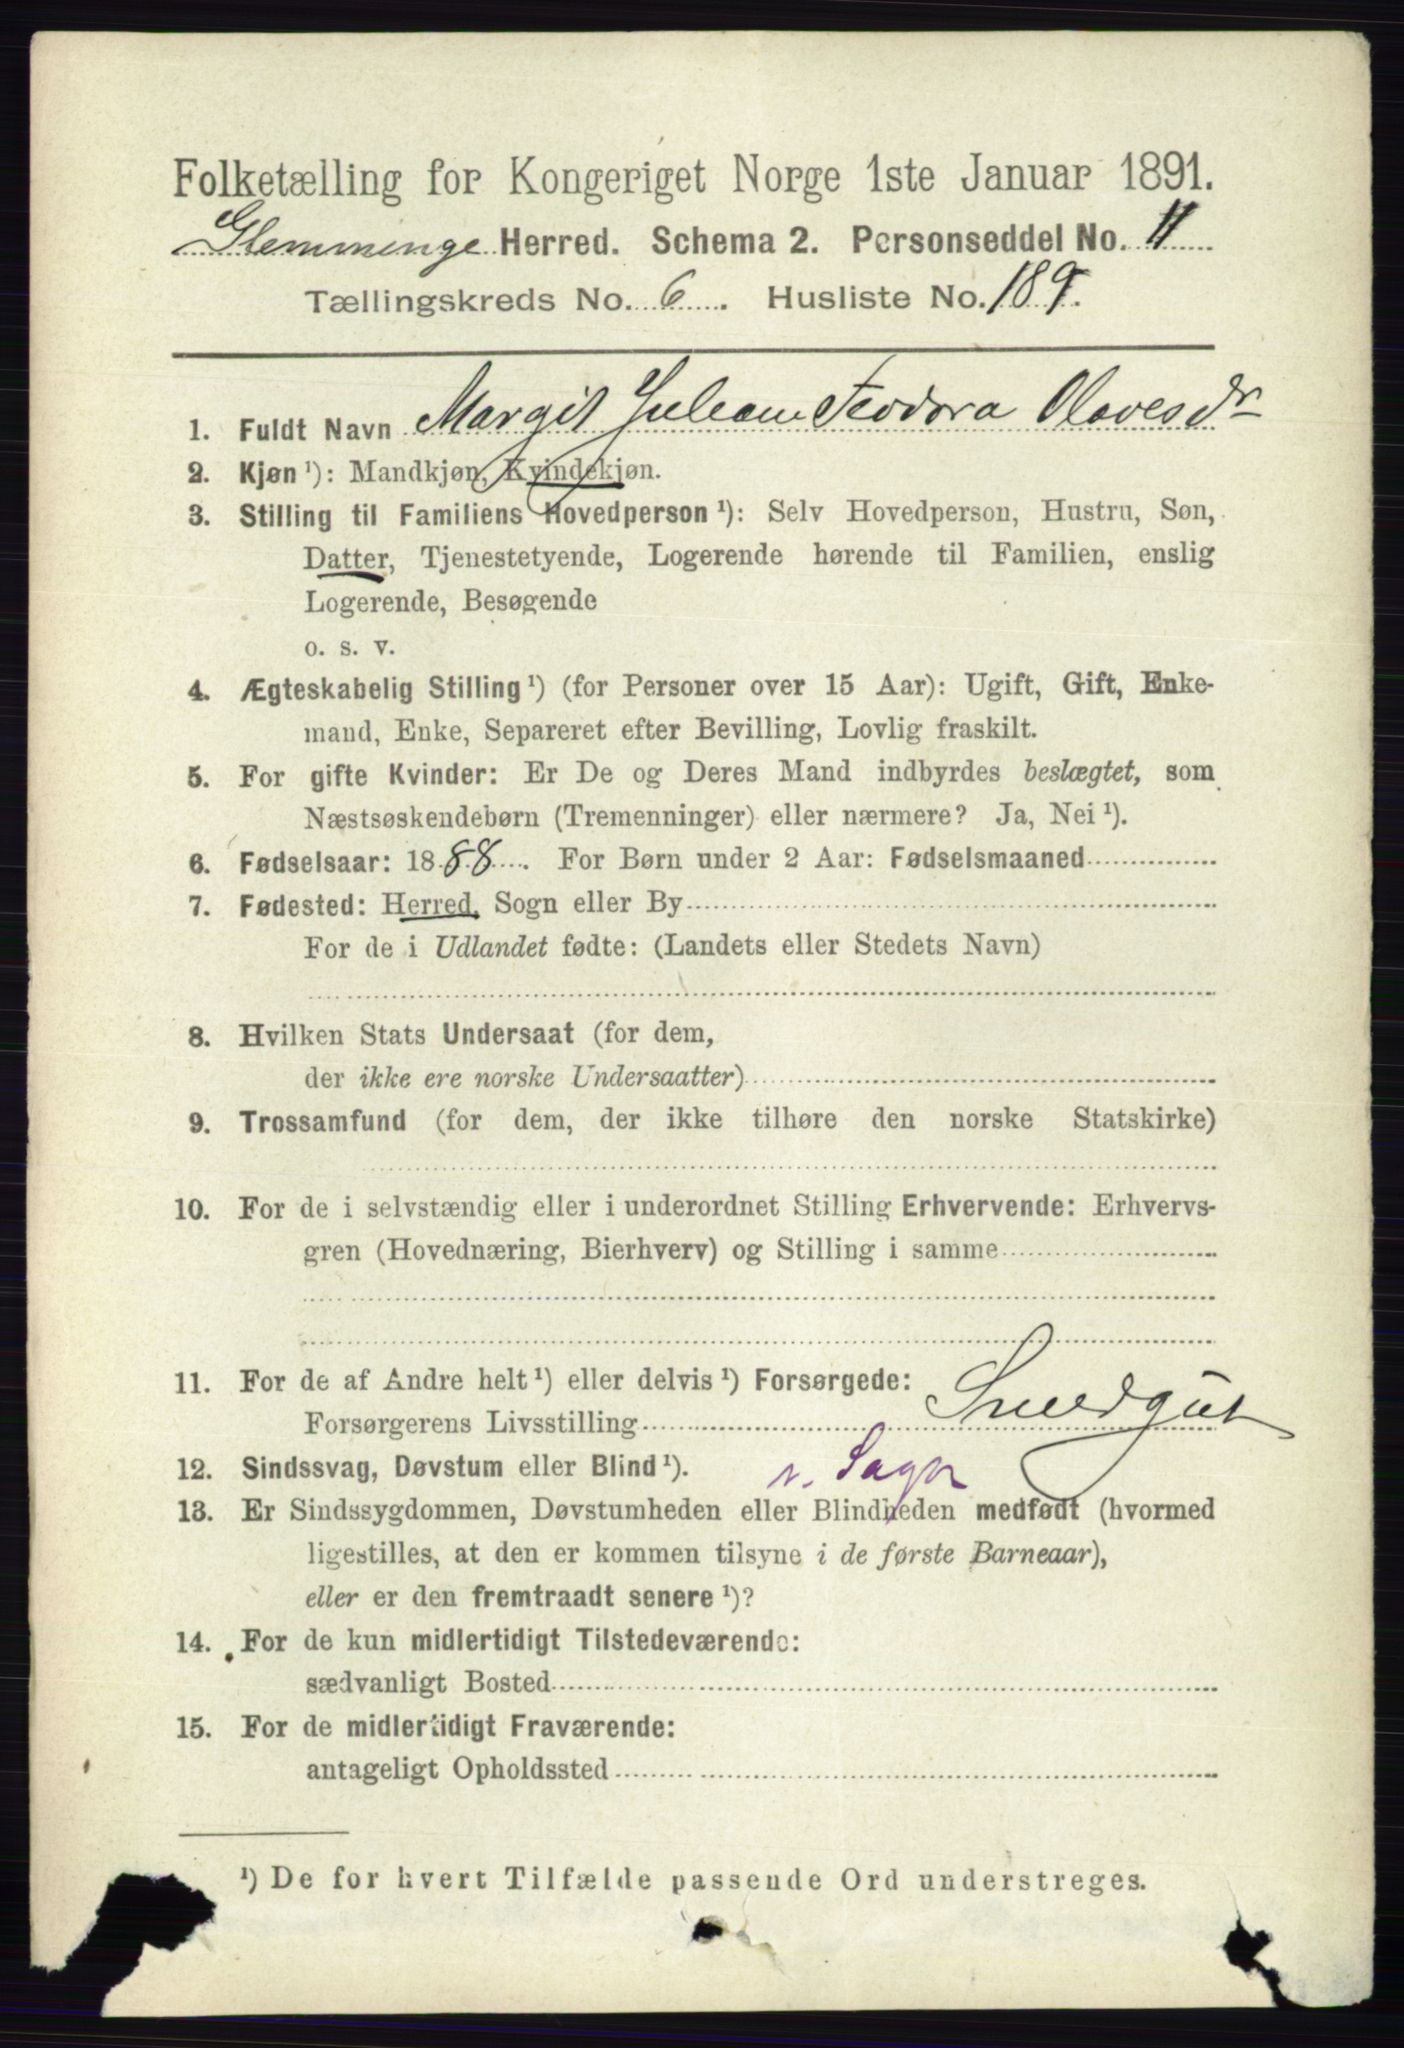 Folketælling for Kongeriget Norge 1ste Januar 1891.
Glemminge Herred. Schema 2. Personseddel No. 11
Tællingskreds No. 6. Husliste No. 189.
1. Fuldt Navn Margit Feodora Olavesdr
2. Kjøn ¹): Mandkjøn, Kvindekjøn.
3. Stilling til Familiens Hovedperson ¹): Selv Hovedperson, Hustru, Søn,
Datter, Tjenestetyende, Logerende hørende til Familien, enslig
Logerende, Besøgende
o. s. v.
4. Ægteskabelig Stilling ¹) (for Personer over 15 Aar): Ugift, Gift, Enke-
mand, Enke, Separeret efter Bevilling, Lovlig fraskilt.
5. For gifte Kvinder: Er De og Deres Mand indbyrdes beslægtet, som
Næstsøskendebørn (Tremenninger) eller nærmere? Ja, Nei ¹).
6. Fødselsaar: 1888. For Børn under 2 Aar: Fødselsmaaned
7. Fødested: Herred, Sogn eller By
For de i Udlandet fødte: (Landets eller Stedets Navn)
8. Hvilken Stats Undersaat (for dem,
der ikke ere norske Undersaatter)
9. Trossamfund (for dem, der ikke tilhøre den norske Statskirke)
10. For de i selvstændig eller i underordnet Stilling Erhvervende: Erhvervs-
gren (Hovednæring, Bierhverv) og Stilling i samme
11. For de af Andre helt ¹) eller delvis ¹) Forsørgede:
Forsørgerens Livsstilling
12. Sindssvag, Døvstum eller Blind ¹).
13. Er Sindssygdommen, Døvstumheden eller Blindheden medfødt (hvormed
ligestilles, at den er kommen tilsyne i de første Barneaar),
eller er den fremtraadt senere ¹)?
14. For de kun midlertidigt Tilstedeværende:
sædvanligt Bosted
15. For de midlertidigt Fraværende:
antageligt Opholdssted
¹) De for hvert Tilfælde passende Ord understreges.